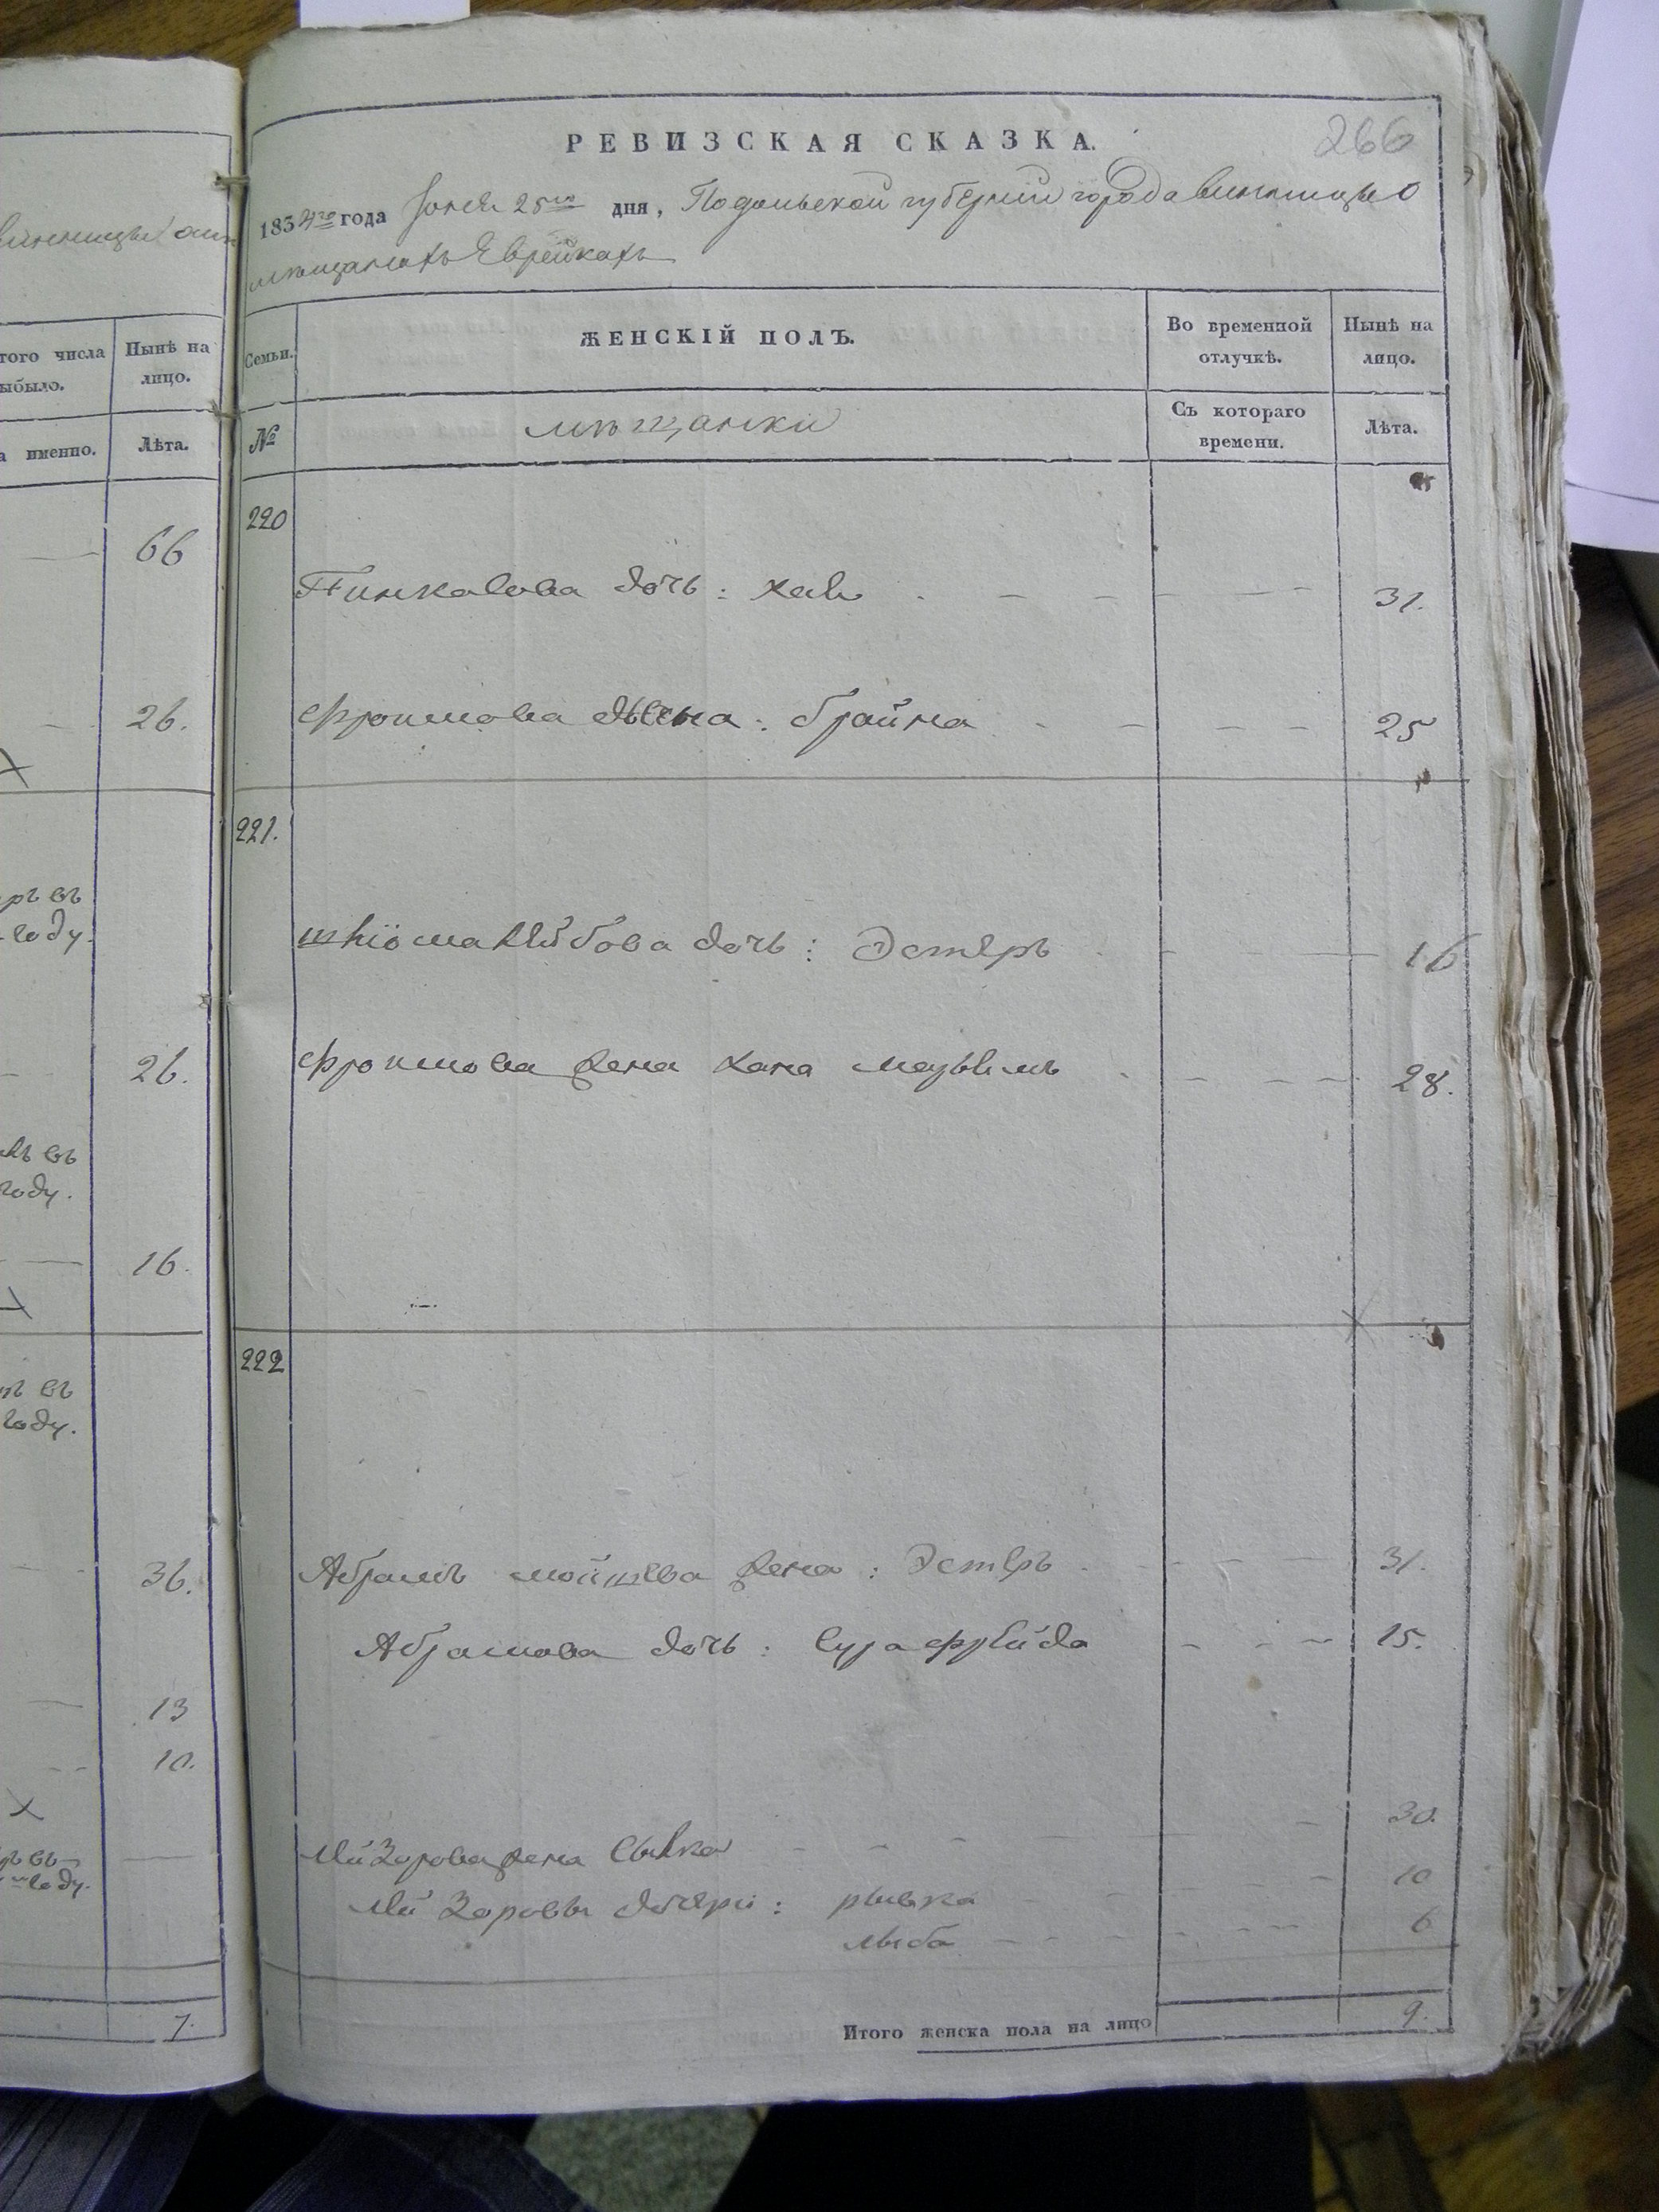 266
РЕВИЗСКАЯ СКАЗКА.
1854го года Іюня 25го дня, Подольской губерніи города Винницы о
мѣщанахъ Еврейкахъ
Винницы
того числа
ыбыло.
Нынѣ на
лицо.
а именно.
Лѣта.
66
26.
ръ въ
году.
26.
въ
году.
16.
въ
году.
36.
13
10.
въ
году.
7.
Семьи.
ЖЕНСКІЙ ПОЛЪ.
Во временной
отлучкѣ.
Нынѣ на
лицо.
№
мѣщанки
Съ котораго
времени.
Лѣта.
220
Пинкасова дочь: 31.
Фроимова жена: Брайна 25
221.
дочь: Эстеръ 16
Фроимова жена Хана 28.
222
Абрамъ Мойшева жена: Эстеръ 31.
Абрамова дочь: Сура Фрейда 15.
Лейзорова жена 30.
Лейзоровы дочери: Рывка 10
Лыба 6
Итого женска пола на лицо 9.